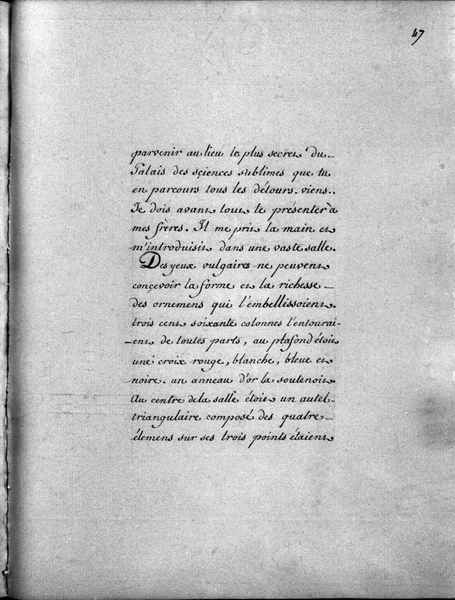 47
parvenir au lieu le plus secret du
Palais des sciences sublimes que tu
en parcours tous les détours. viens.
Je dois avant tout te présenter à
mes frères. Il me prit la main et
m'introduisit dans une vaste salle.
Des yeux vulgaires ne peuvent
conçevoir la forme et la richesse
des ornemens qui l'embellissoient.
trois cent soixante colonnes l'entourai-
ent de toutes parts, au plafond étoit
une croix rouge, blanche, bleue et
noire. un anneau d'or la soutenoit.
Au centre de la salle étoit un autel
triangulaire composé des quatre
élemens sur ses trois points étaient